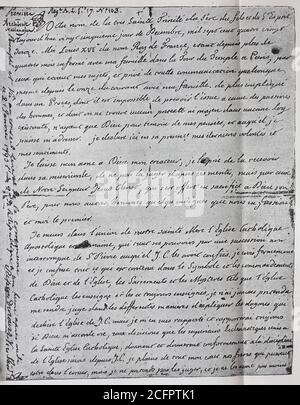 Au nom de la très Sainte Trinité du Père du fils et du St Esprit
Aujourd'hui vingt cinquieme jour de Decembre, mil sept cent quatre vingt
Moi Louis XVI du nom Roy de France, etant depuis plus de
quatre mois enfermé avec ma famille dans la Tour du Temple a Paris, par
ceux qui etoient mes sujets, et privé de toute communication quelconque,
meme depuis le onze du courant avec ma famille, de plus impliqué
dans un Procès, dont il est impossible de prevoir l'issue a cause des passions
des hommes, et dont on ne trouve aucun pretexte ni moyen dans aucune loy
existante, n'ayant que Dieu pour temoin de mes pensées, et auquel je
puisse m'adresser. je declare ici en sa presence mes dernieres volontés et
mes sentiments.
Je laisse mon ame a Dieu mon createur, je le prie de la recevoir
dans sa misericorde, de ne pas la juger d'apres ses merites, mais par ceux
de Notre Seigneur Jesus Christ, qui s'est offert en sacrifice a Dieu son
Père, pour nous autres hommes quelqu'indignes que nous en fussions
et moi le premier.
Je meurs dans l'union de notre Sainte Mere l'Eglise Catholique
Apostolique et Romaine, qui tient ses pouvoirs par une succession non
interrompue de St Pierre auquel J.C. les avoit confiés, je crois fermement
et je confesse tout ce qui est contenu dans le Symbole et les commandements
de Dieu et de l'Eglise, les Sacrements et les Mysteres tels que l'Eglise
Catholique les enseigne et les a toujours enseignés, je n'ai jamais pretendu
me rendre juge dans les differentes manieres d'expliquer les dogmes qui
dechire l'Eglise de J.C. mais je m'en suis rapporté et rapporterai toujours
si Dieu m'accorde vie, aux decisions que les superieurs Ecclesiastiques unis a
la Sainte Eglise Catholique, donnent et donneront conformement a la discipline
de l'Eglise suivie depuis J.C. je plains de tout mon coeur nos freres qui peuvent
etre dans l'erreur, mais je ne pretends pas les juger, et je ne les aime pas moins
alamy
Image ID: 2CFPTK1
www.alamy.com